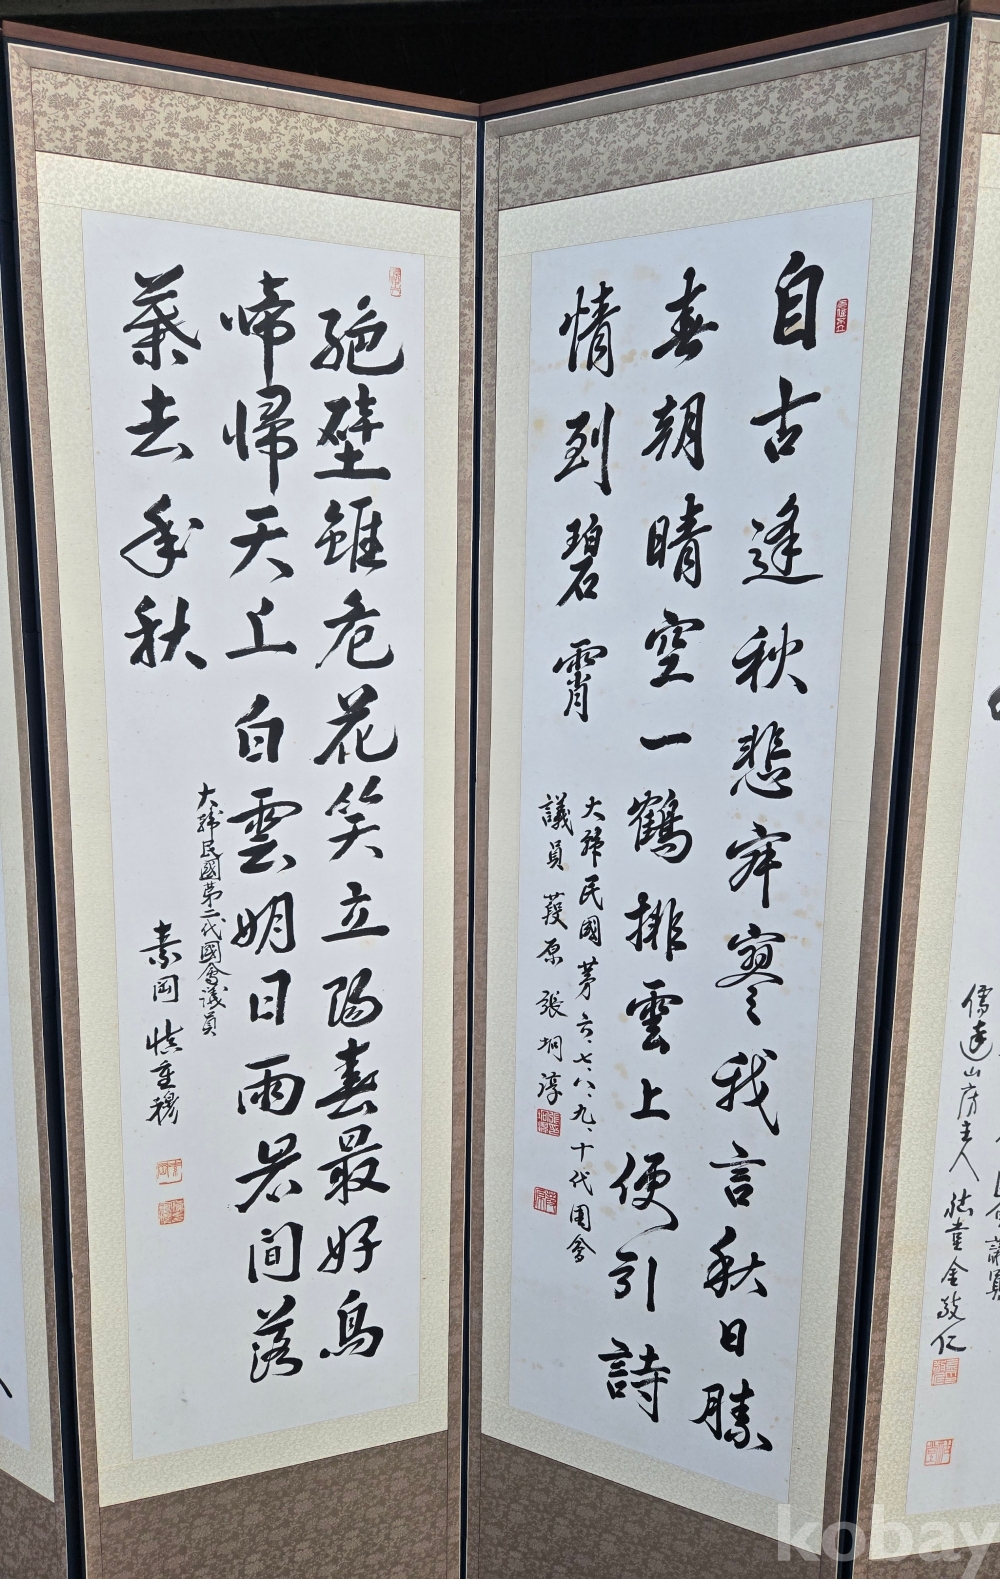 儒達山房主人 金敬仁
自古逢秋悲寂寥我言秋日勝
春朝晴空一鶴排雲上便引詩
情到碧霄
大韓民國第六·七·八·九·十代國會
議員 原 張坰淳
絶壁雖危花笑立陽春最好鳥
啼帰天上白雲明日雨岩間落
葉去年秋
大韓民國第二代國會議員
素岡 愼重穆
kobay